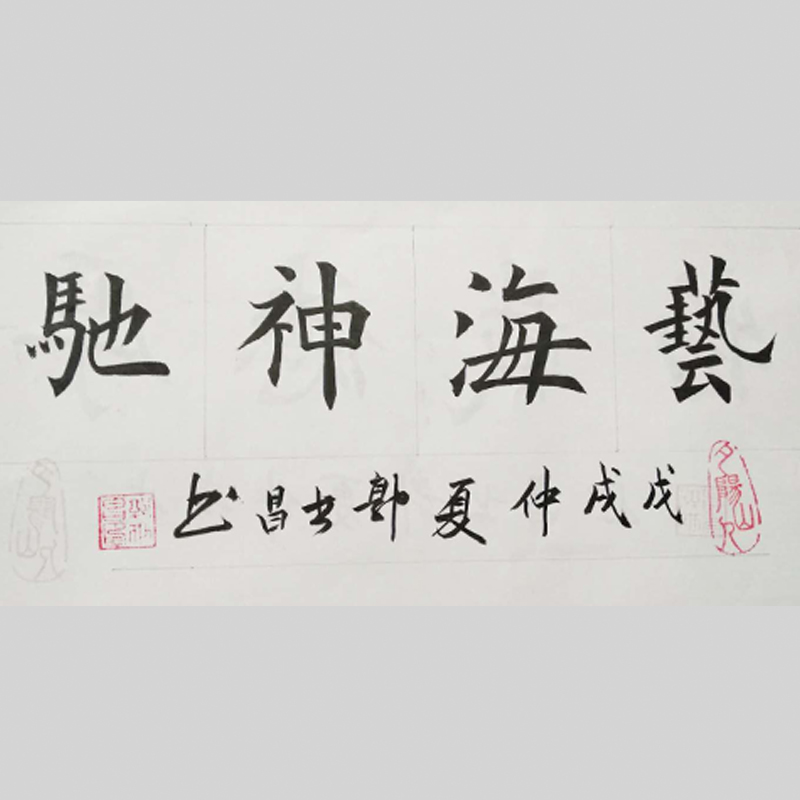 藝海神馳
戊戌仲夏 昌书
夕陽山人